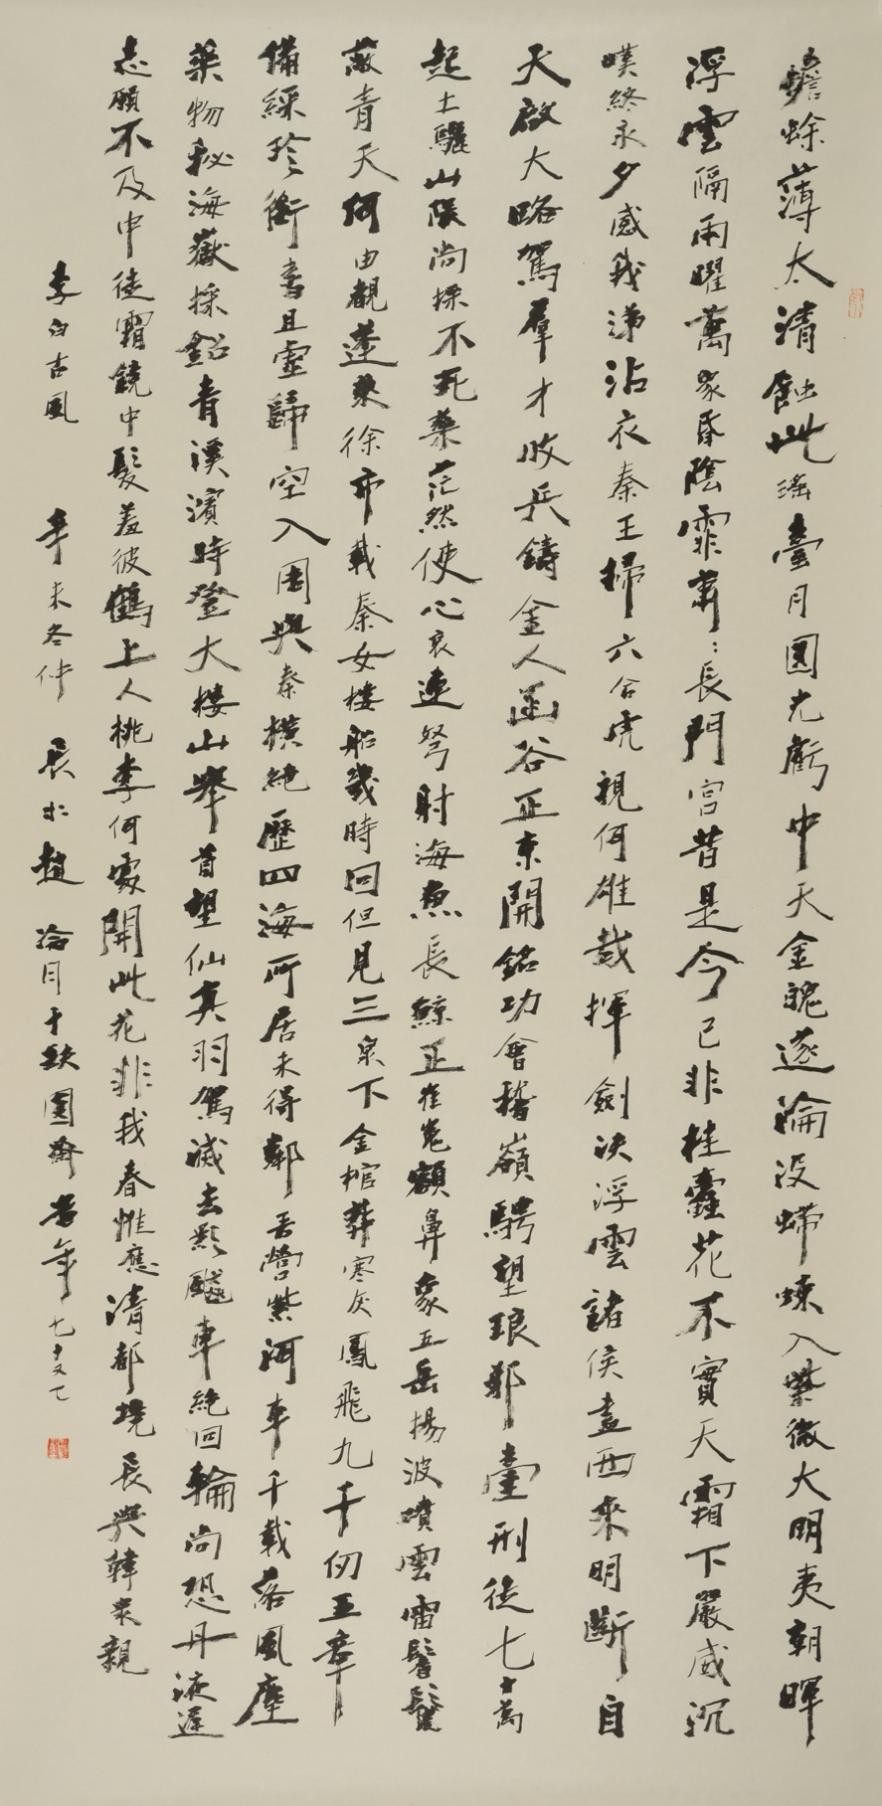 蟾蜍薄太清蝕此瑤臺月圓光虧中天金魄遂淪没螮蝀入紫微大明夷朝暉
浮雲隔兩曜萬象昏陰霏蕭:長門宮昔是今已非桂蠹花不實天霜下嚴威沉
嘆終永夕感我涕沾衣秦王掃六合虎視何雄哉揮劍決浮雲諸侯盡西來明斷自
天啟大略駕羣才收兵鑄金人函谷正東開銘功會稽嶺騁望琅邪臺刑徒七十萬
起土驪山隈尚採不死藥茫然使心哀連弩射海魚長鯨正崔嵬額鼻象五岳揚波噴雲雷鬐鬣
蔽青天何由觀蓬萊徐巿載秦女樓船幾時回但見三泉下金棺葬寒灰鳳飛九千仞五章
備綵珍銜書且虛歸空入周與秦橫絶歷四海所居未得鄰吾營紫河車千載落風塵
藥物秘海嶽採鉛青溪濱時登大樓山舉首望仙真羽駕滅去影飈車絶回輪尚恐丹液遲
志願不及申徒霜鏡中髮羞彼鶴上人桃李何處開此花非我春惟應清都境長與韓衆親
李白古風 辛未冬仲 長 趙冷月于缺圓齋 年七十又七